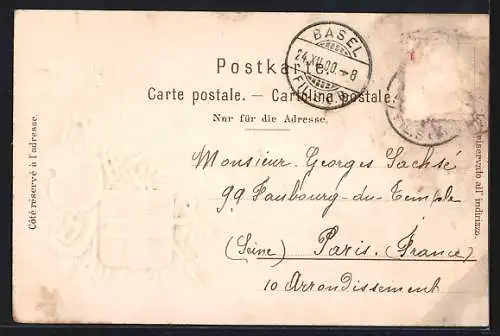 BASEL
24.XII.00.-8
Postkarte.
Carte postale. — Cartolina postale.
Nur für die Adresse.
Côté réservé à l'adresse.
riservato all' indirizzo
Monsieur Georges Sachsé
99 Faubourg-du-Temple
(Seine) Paris. (France)
10 Arrondissement